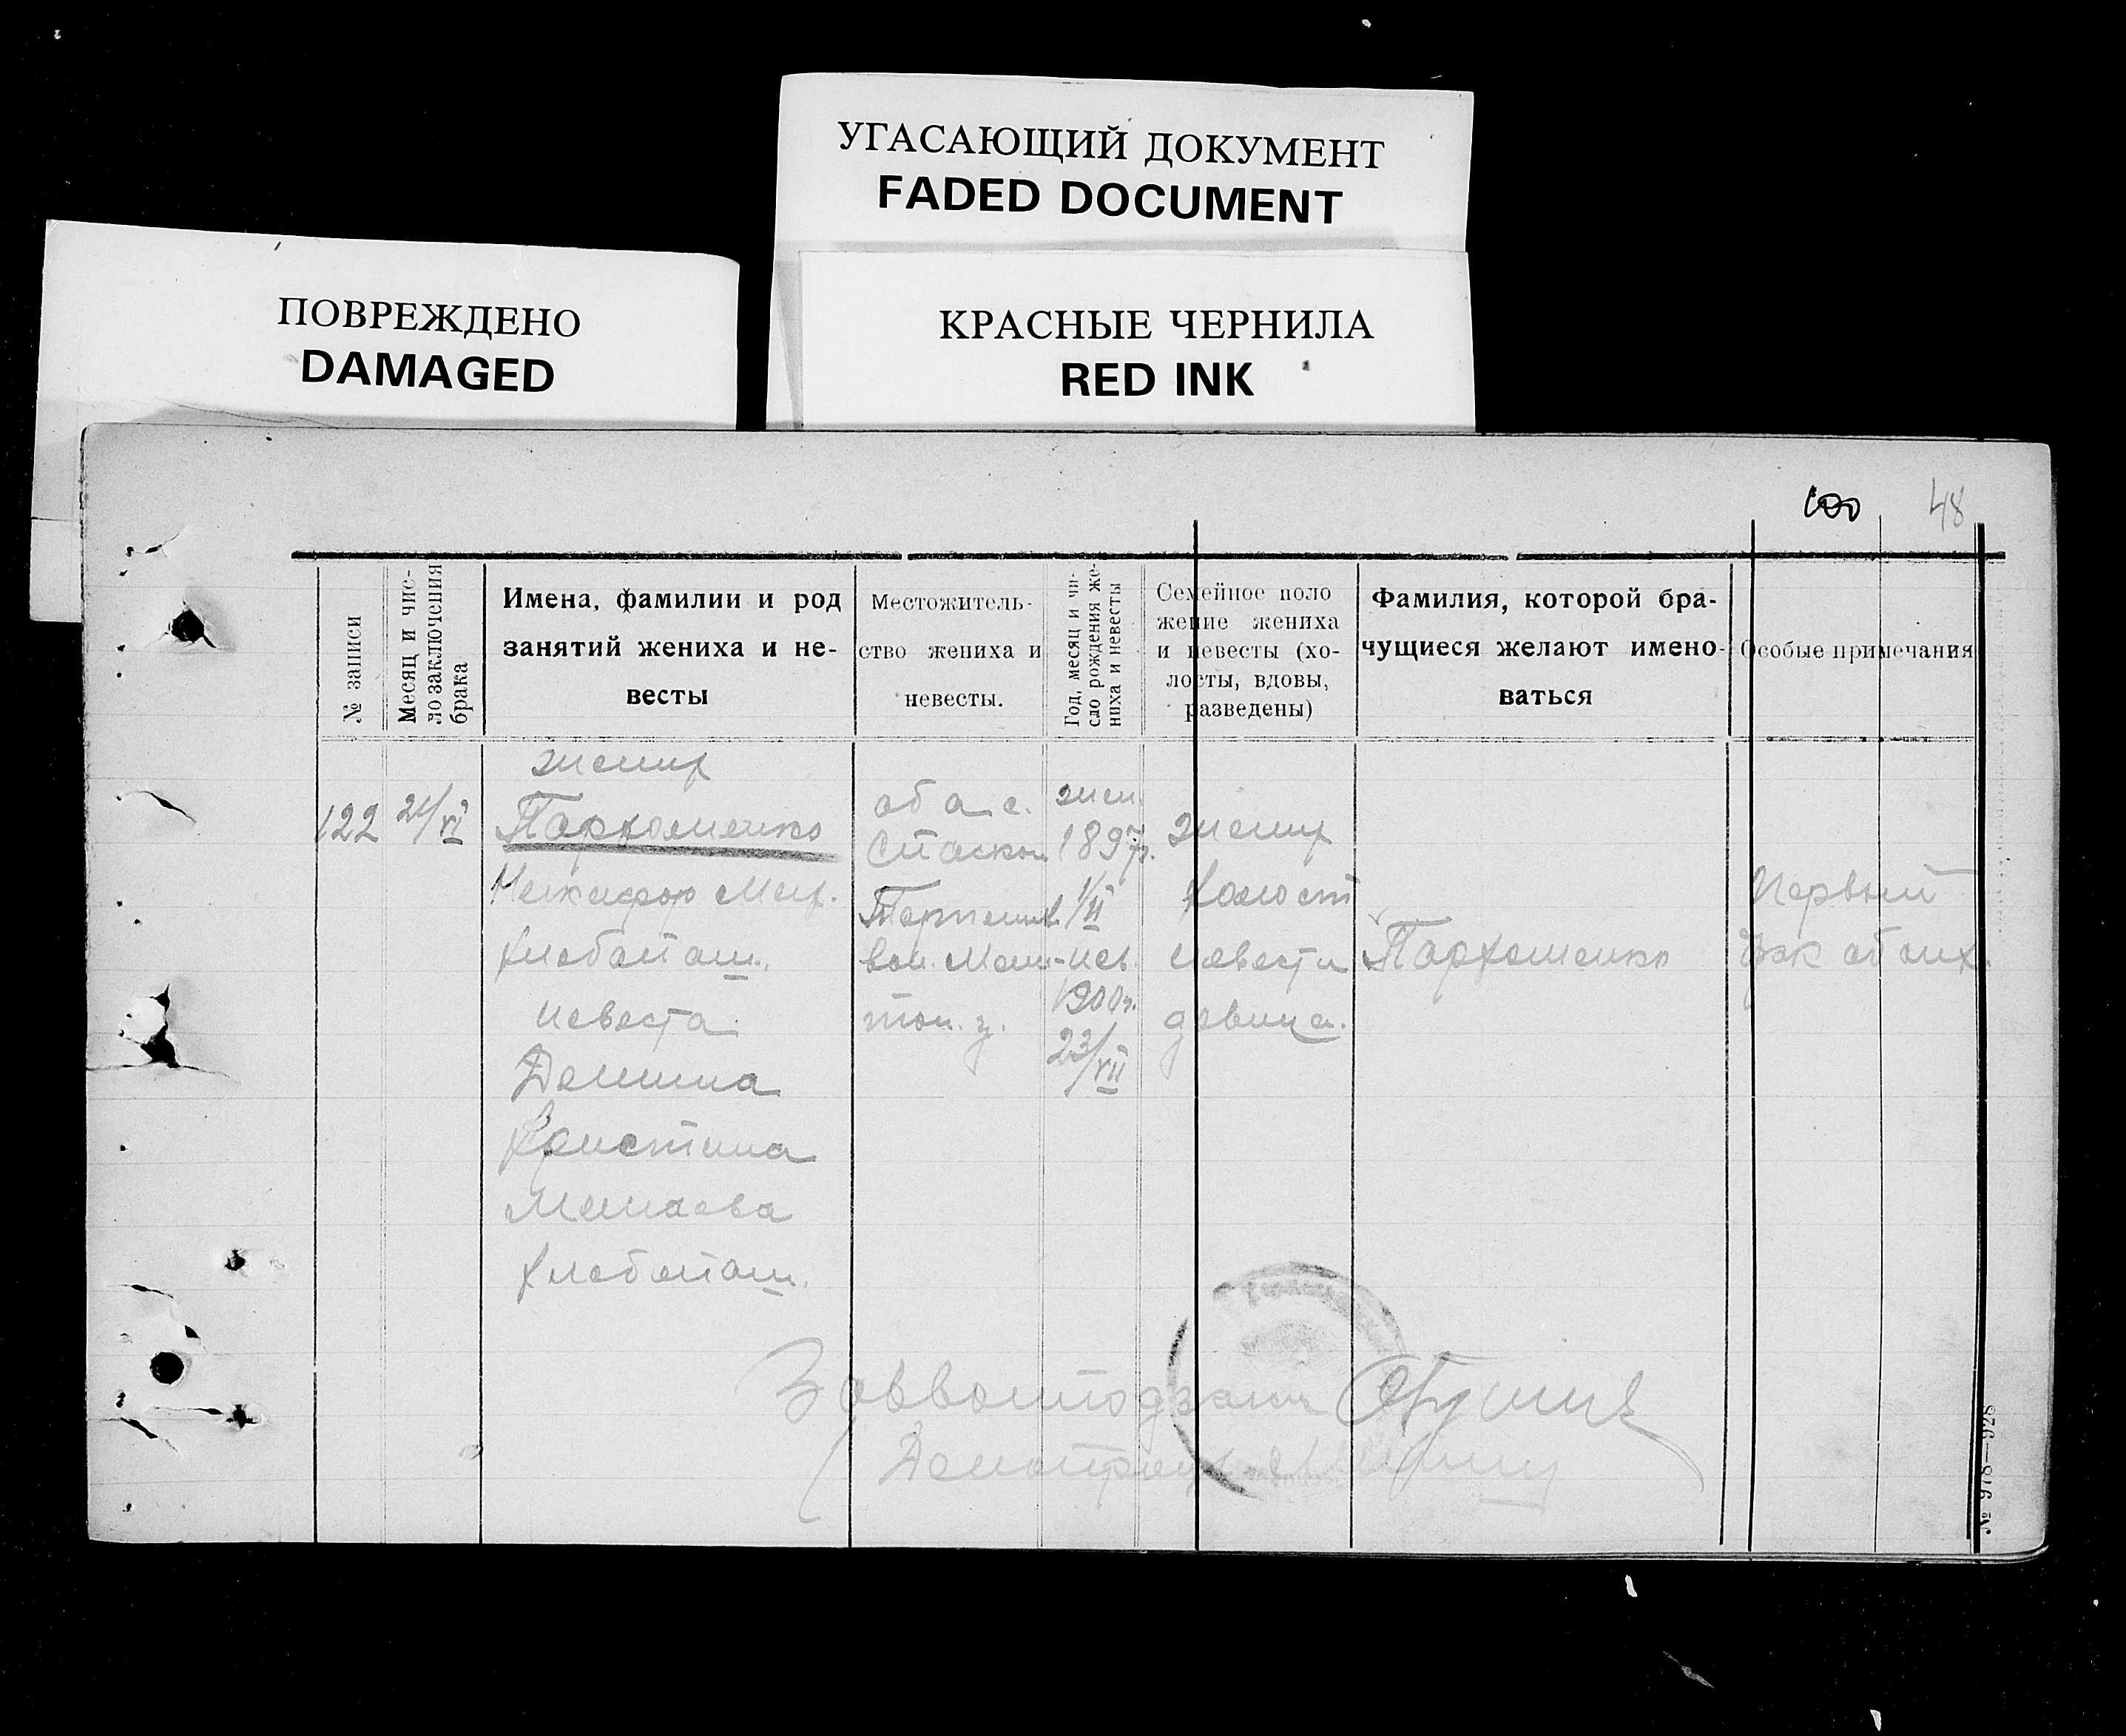 УГАСАЮЩИЙ ДОКУМЕНТ
FADED DOCUMENT
ПОВРЕЖДЕНО
DAMAGED
КРАСНЫЕ ЧЕРНИЛА
RED INK
100
48
№ записи
Месяц и чис-
ло заключения
брака
Имена, фамилии и род
занятий жениха и не-
весты
Местожитель-
ство жениха и
невесты.
Год, месяц и чи-
сло рождения же-
ниха и невесты
Семейное поло
жение жениха
и невесты (хо-
лосты, вдовы,
разведены)
Фамилия, которой бра-
чущиеся желают имено-
ваться
Особые примечания
122
24/VI
жених
Пархоменко
Никифор Мих.
хлебопаш.
невеста
Демина
Христина
хлебопаш.
оба с.
Спаском
вол.
жен.
1897г.
1/II
нев.
1900г.
23/VII
жених
холост
невеста
девица.
Пархоменко
Первый
брак обоих.
№ 978—928